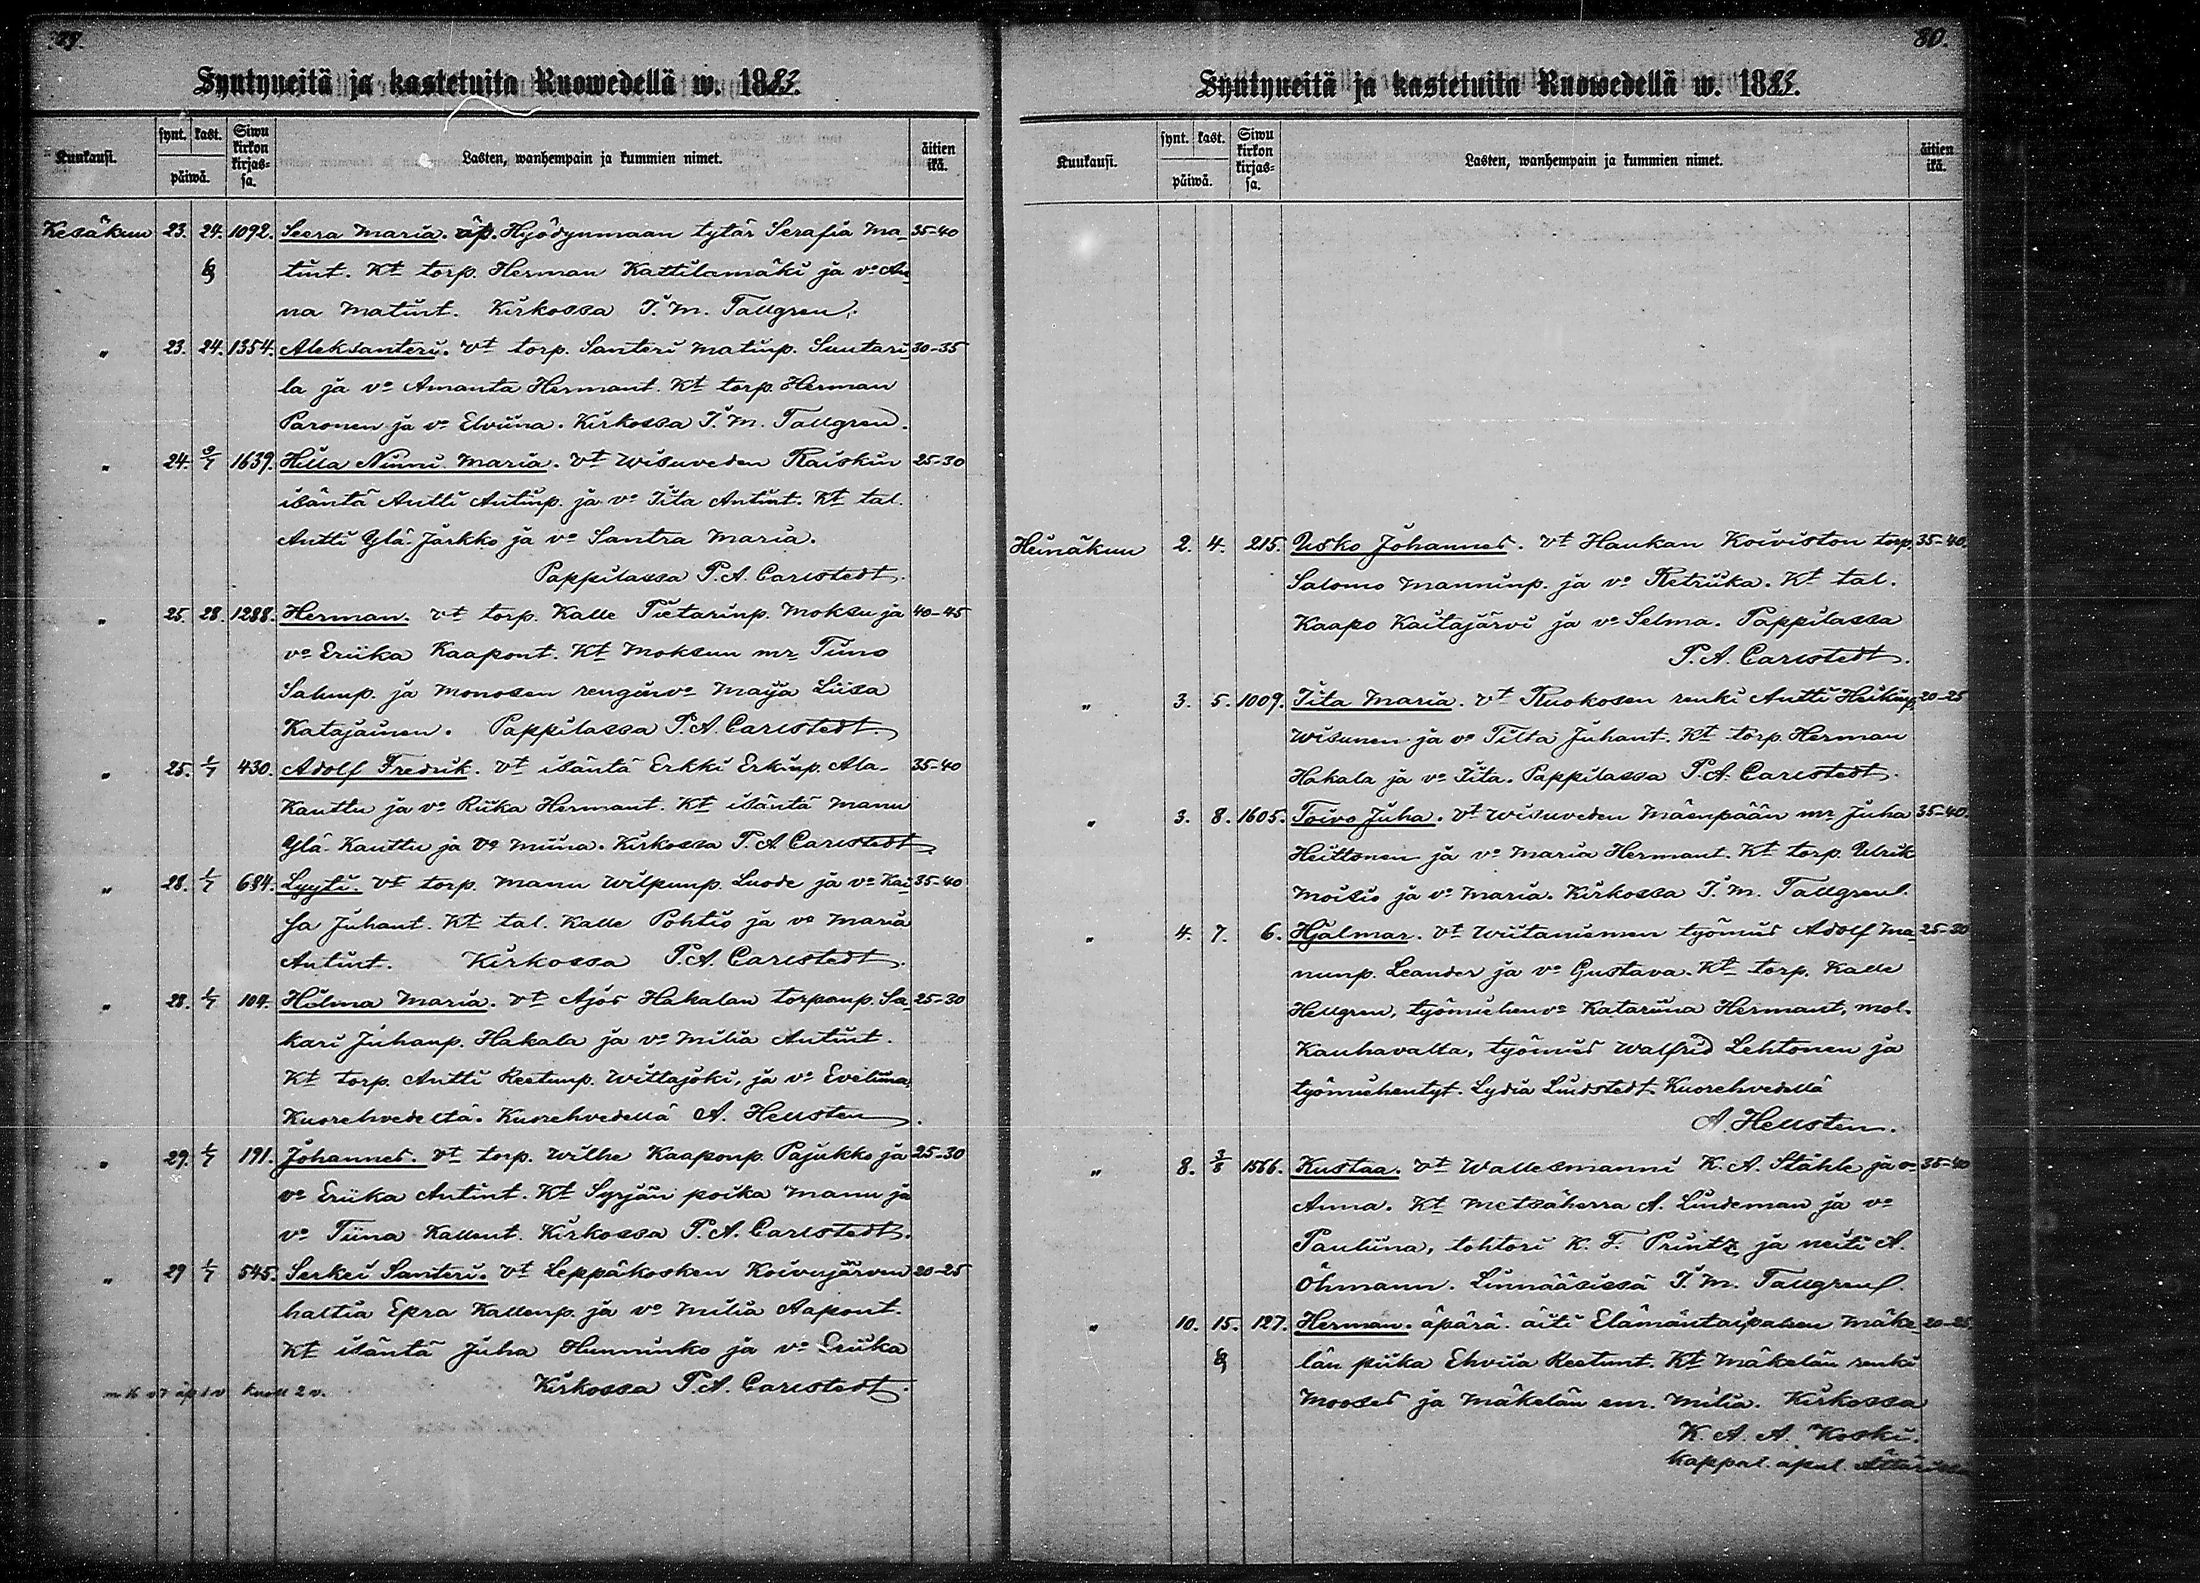 79.
Syntyneitä ja kastetuita Ruowedellä w. 1883.
Kuukausi.
synt.
kast.
päiwä.
Siwu kirkon kirjas=sa.
Lasten, wanhempain ja kummien nimet.
äitien ikä.
Kesäkuu 23. 24. 1092. Seera Maria. äp. Hyödynmaan tytär Serafia Ma- 35-40
tint. Kt torp. Herman Kattilamäki ja vo An
na Matint. Kirkossa I. M. Tallgren.
" 23. 24. 1354. Aleksanteri. Vt torp. Santeri Matinp. Suutari 30-35
la ja vo Amanta Hermant. Kt torp. Herman
Paronen ja vo Elviina. Kirkossa I. M. Tallgren.
" 24. 8/7 1639. Hilla Ninni Maria. Vt Wisuveden Raiskin 25-30
isäntä Antti Antinp. ja vo Iita Antint. Kt tal.
Antti Ylä-Järkko ja vo Santra Maria.
Pappilassa P. A. Carlstedt.
" 25. 28. 1288. Herman. Vt torp. Kalle Pietarinp. Moksu ja 40-45
vo Eriika Kaapont. Kt Moksun mr Tiino
ja Monosen renginvo Maija Liisa
Katajainen. Pappilassa P. A. Carlstedt.
" 25. 1/7 430. Adolf Fredrik. Vt isäntä Erkki Erkinp. Ala- 35-40
Kauttu ja vo Riika Hermant. Kt isäntä Manu
Ylä-Kauttu ja Vo Miina. Kirkossa P. A. Carlstedt
" 28. 1/7 684. Lyyti. Vt torp. Manu Wilpunp. Luode ja vo Kai 35-40
sa Juhant. Kt tal. Kalle Pohtio ja vo Maria
Antint. Kirkossa P. A. Carlstedt.
" 28. 1/7 104. Hilma Maria. Vt Ajos Hakalan torpanp. Sa- 25-30
kari Juhanp. Hakala ja vo Milia Antint.
Kt torp. Antti Reetunp. Wittajoki, ja vo Eveliina,
Kuorehvedeltä. Kuorehvedellä A. Hellsten.
" 29. 1/7 191. Johannes. Vt torp. Wilhe Kaaponp. Pajukko ja 25-30
vo Eriika Antint. Kt Syrjän poika Manu ja
vo Tiina Kallent. Kirkossa P. A. Carlstedt.
" 29 1/7 545. Serkei Santeri. Vt Leppäkosken Koivujärven 20-25
haltia Epra Kallenp. ja vo Milia Aapont.
Kt isäntä Juha Hunninko ja vo Eriika
Kirkossa P. A. Carlstedt.
80.
Syntyneitä ja kastetuita Ruowedellä w. 1883.
Kuukausi.
synt.
kast.
päiwä.
Siwu kirkon kirjas=sa.
Lasten, wanhempain ja kummien nimet.
äitien ikä.
Heinäkuu 2. 4. 215. Usko Johannes. Vt Haukan Koiviston torp. 35-40.
Salomo Manninp. ja vo Retriika. Kt tal.
Kaapo Kaitajärvi ja vo Selma. Pappilassa
P. A. Carlstedt.
" 3. 5. 1009. Iita Maria. Vt Ruokosen renki Antti Heikinp. 20-25
Wisunen ja vo Tilta Juhant. Kt torp. Herman
Hakala ja vo Iita. Pappilassa P. A. Carlstedt.
" 3. 8. 1605. Toivo Juha. Vt Wisuveden Mäenpään mr Juha 35-40.
Heittonen ja vo Maria Hermant. Kt torp. Ulrik
Moisio ja vo Maria. Kirkossa I. M. Tallgren.
" 4. 7. 6. Hjalmar. Vt Wiitaniemen työmies Adolf Ma- 25-30
nunp. Leander ja vo Gustava. Kt torp. Kalle
Hellgren, työmiehenvo Katariina Hermant, mol.
Kauhavalta, työmies Walfrid Lehtonen ja
työmiehentyt. Lydia Lindstedt Kuorehvedellä
A. Hellsten.
" 8. 3/8 1566. Kustaa. Vt Wallesmanni K. A. Ståhle ja vo 35-40
Anna. Kt Metsäherra A. Lindeman ja vo
Pauliina, tohtori K. F. Printz ja neiti A.
Öhmann. Linnääsissä I. M. Tallgren.
" 10. 15. 127. Herman. äpärä. äiti Elämäntaipaleen Mäke- 20-25.
län piika Ehviia Reetunt. Kt Mäkelän renki
Mooses ja Mäkelän em. Milia. Kirkossa
K. A. A. Koski.
kappal. apul.